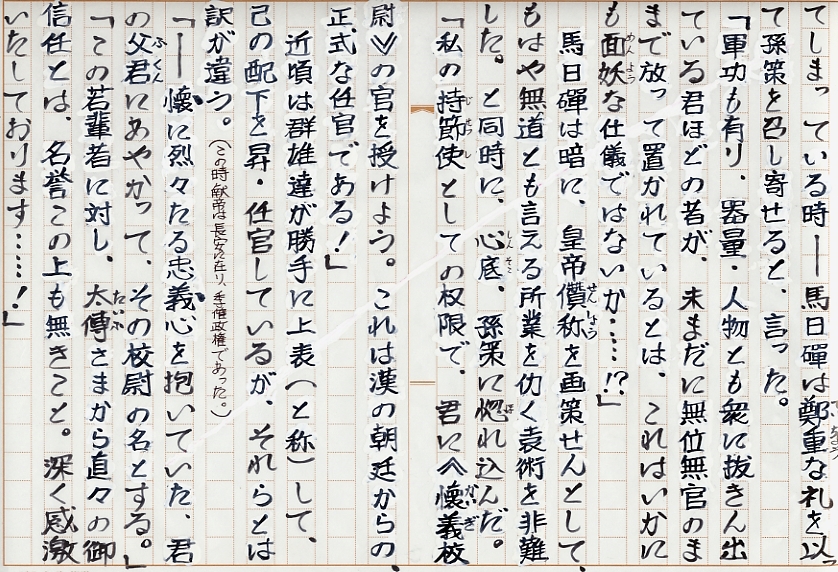 てしまっている時――馬日磾は鄭重な礼を以っ
て孫策を召し寄せると、言った。
「軍功も有り、器量・人物とも衆に抜きん出
ている君ほどの者が、未まだに無位無官のま
まで放って置かれているとは、これはいかに
も面妖な仕儀ではないか……⁉」
馬日磾は暗に、皇帝僭称を画策せんとして、
もはや無道とも言える所業を働く袁術を非難
した。と同時に、心底、孫策に惚れ込んだ。
「私の持節使としての権限で、君に≪懐義校
尉≫の官を授けよう。これは漢の朝廷からの、
正式な任官である！」
近頃は群雄達が勝手に上表（と称）して、
己の配下を昇・任官しているが、それらとは
訳が違う。（この時献帝は長安に在り、李傕政権であった。）
「――懐に烈々たる忠義心を抱いていた、君
の父君にあやかって、その校尉の名とする。」
「この若輩者に対し、太傅さまから直々の御
信任とは、名誉この上も無きこと。深く感激
いたしております……！」